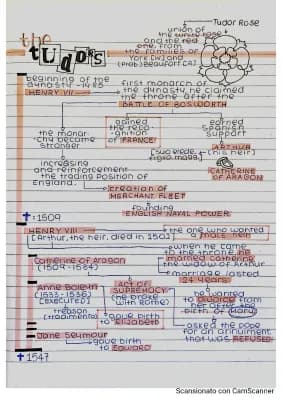 the
TUDORS
Tudor Rose
union of
the white rose
and the red
one, from
the families of
York [W] and
beginning of the
dynasty - 1485
HENRY VII
first monarch of
the dynasty, he claimed
the throne after the
BATTLE OF BOSWORTH
the monar-
chy became
stronger
gained
the reco-
gnition
of FRANCE
earned
spanish
support
ARTHUR
[his heir]
CATHERINE
OF ARAGON
increasing
and reinforcement
the trading position of
England.
creation of
MERCHANT FLEET
founding
ENGLISH NAVAL POWER
✝ 1509
HENRY VIII
[Arthur, the heir, died in 1502]
the one who wanted
a male heir
when he came
to the throne he
married Catherine
the widow of Arthur
Catherine of Aragon
(1509-1584)
marriage lasted
24 years
Anne Boleyn
(1533-1536)
[executed]
treason
(tradimento)
ACT OF
SUPREMACY
(he broke
with Rome)
gave birth
to Elizabeth
he wanted
to divorce from
her after the
birth of Mary
asked the pope
for an annulment
that was REFUSED
Jane Seymour
gave birth
to Edward
✝ 1547
Scansionato con CamScanner